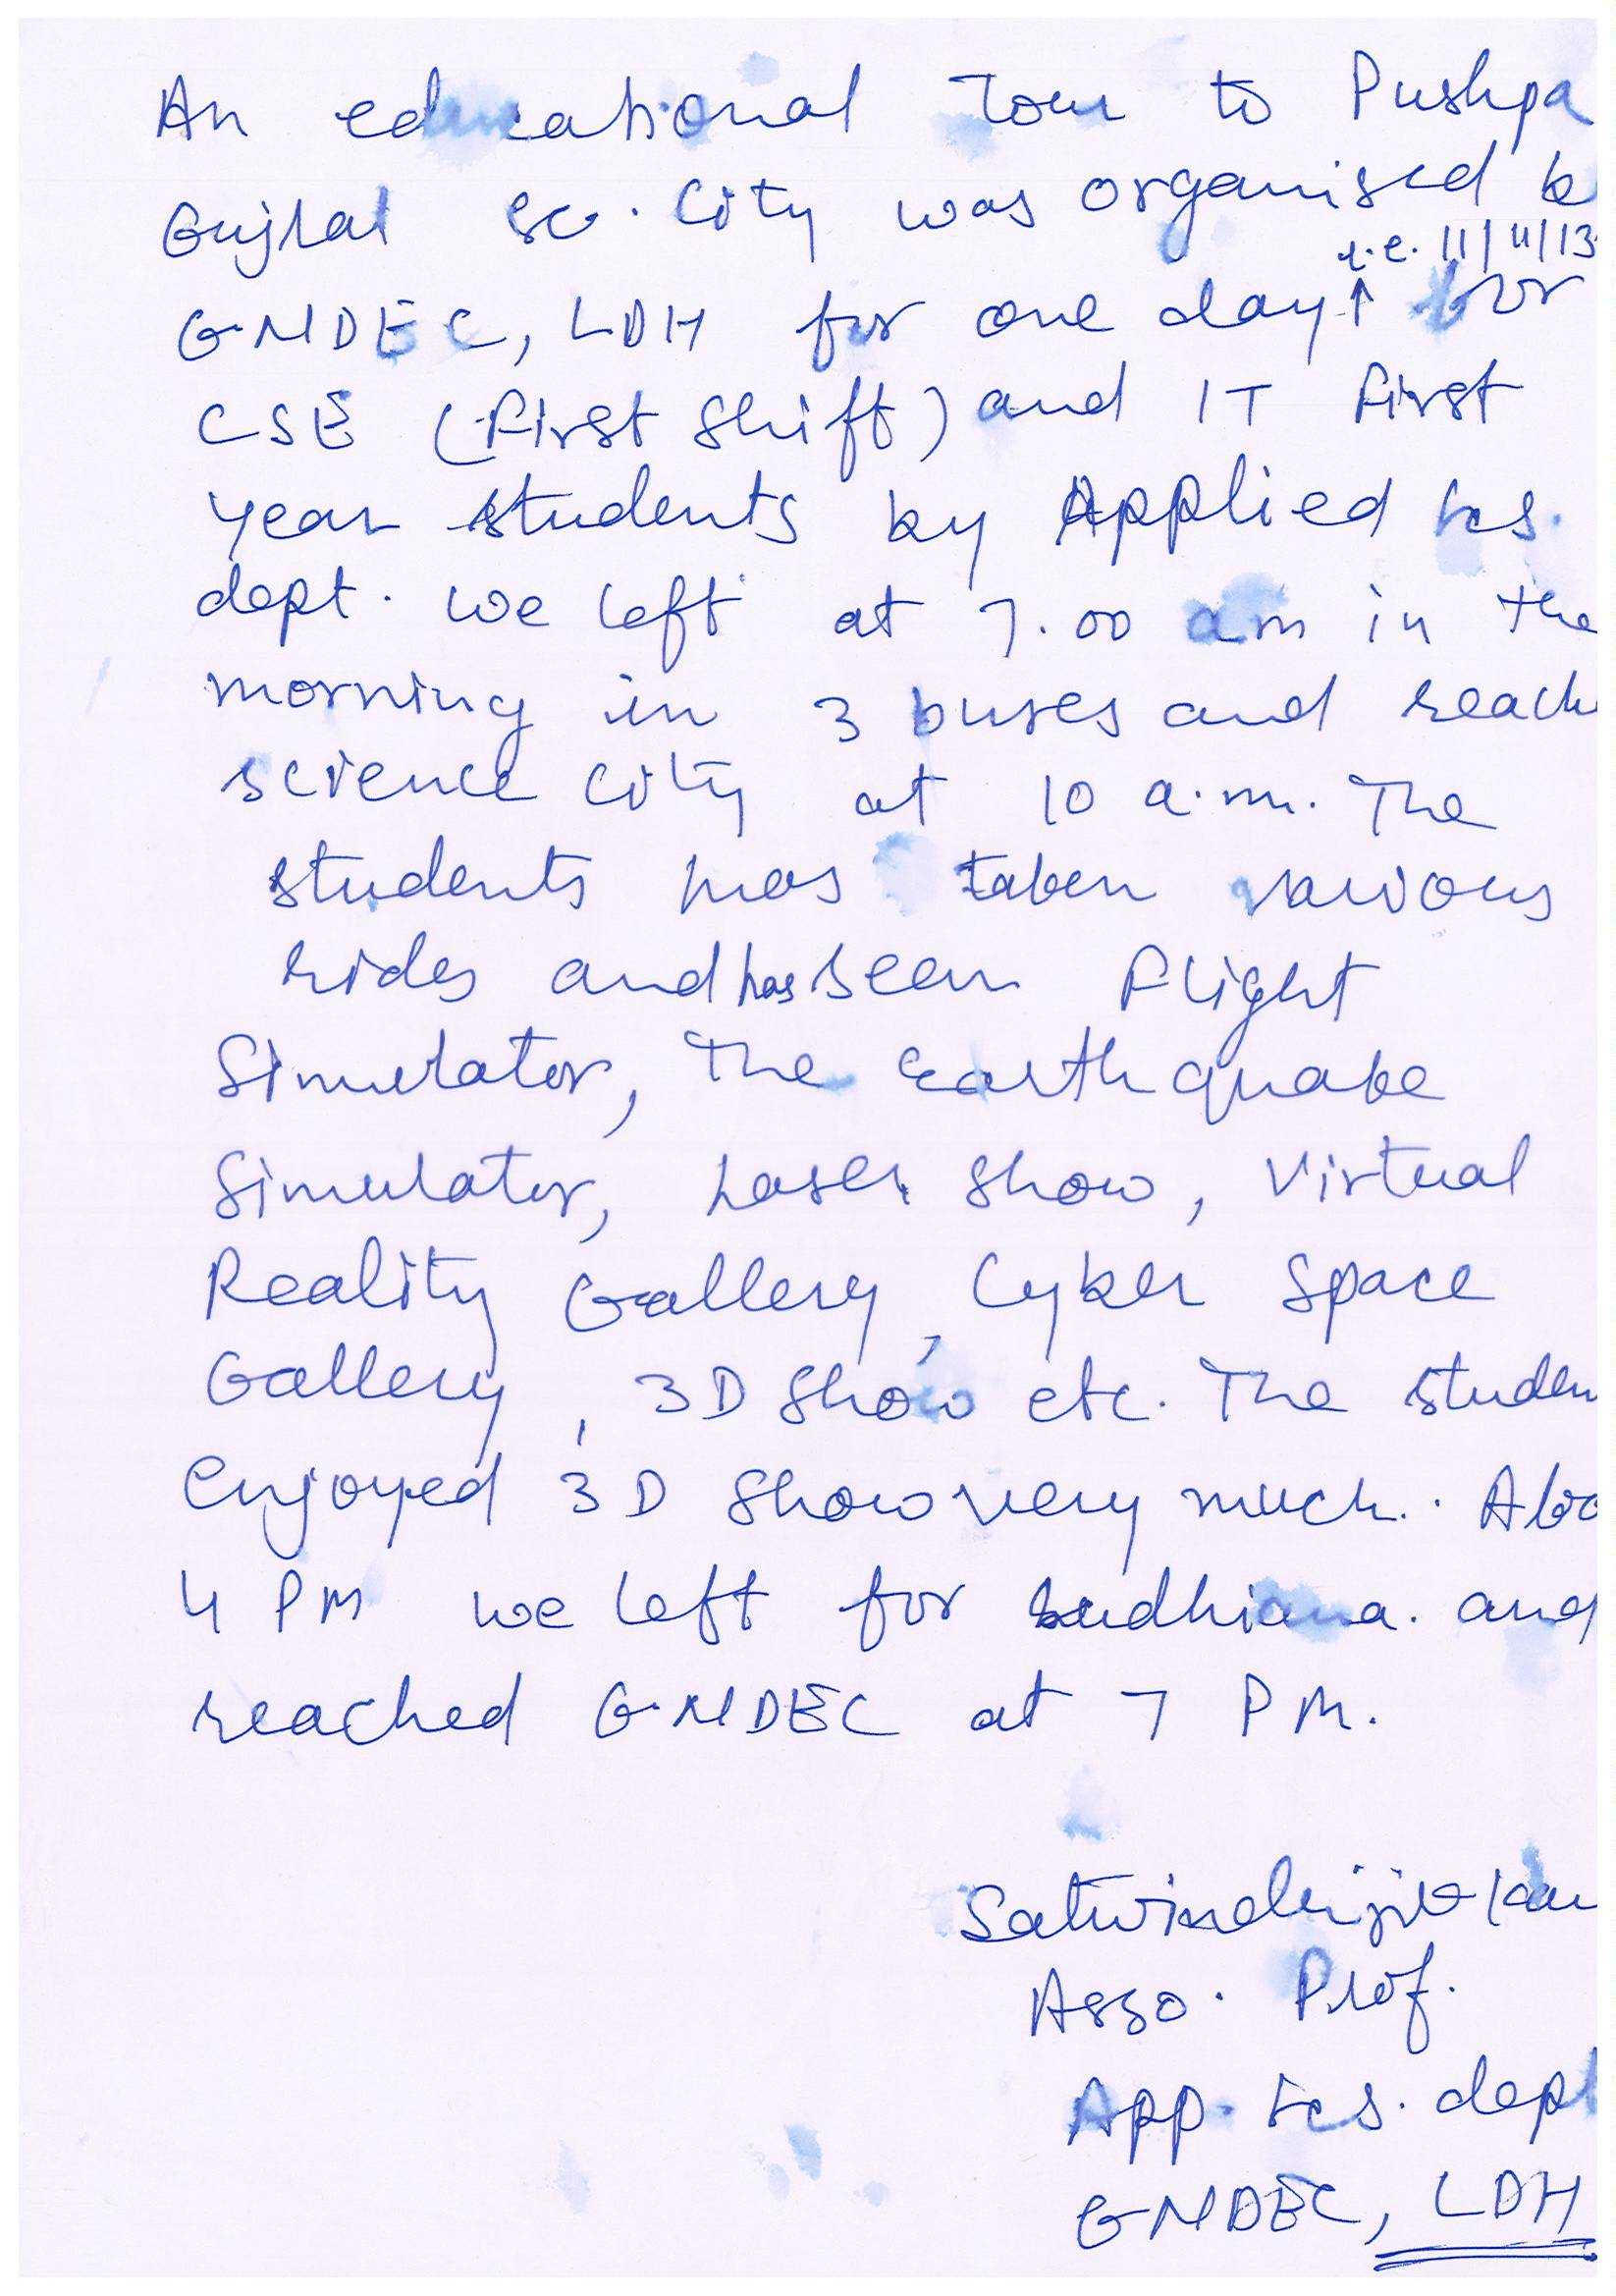 An educational Tour to Pushpa
Gujral Sc. City was organised b
i.e. 11/11/13
GNDEC, LDH for one day ↑ for
CSE (First Shift) and IT First
year students by Applied Scs.
dept. we left at 7.00 am in the
morning in 3 buses and reach
science city at 10 a.m. The
students has taken various
rides and has seen Flight
Simulator, The Earthquake
Simulator, Laser Show, Virtual
Reality Gallery, Cyber Space
Gallery, 3D Show etc. The studen
enjoyed 3D Show very much. Abo
4 PM we left for Ludhiana. and
reached GNDEC at 7 PM.
Satwinderjit Kau
Asso. Prof.
App. Scs. dept
GNDEC, LDH